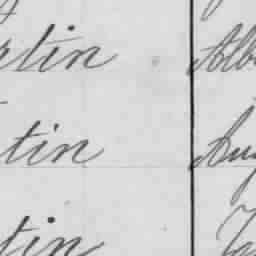 rtin Alb
tin Aug
tin